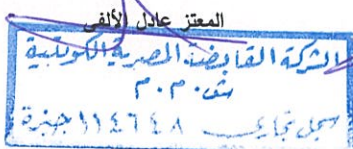 المعتز عادل الألفي
الشركة القابضة المصرية الكويتية
ش.م.م
سجل تجارى ١١٤٦٤٨ جيزة